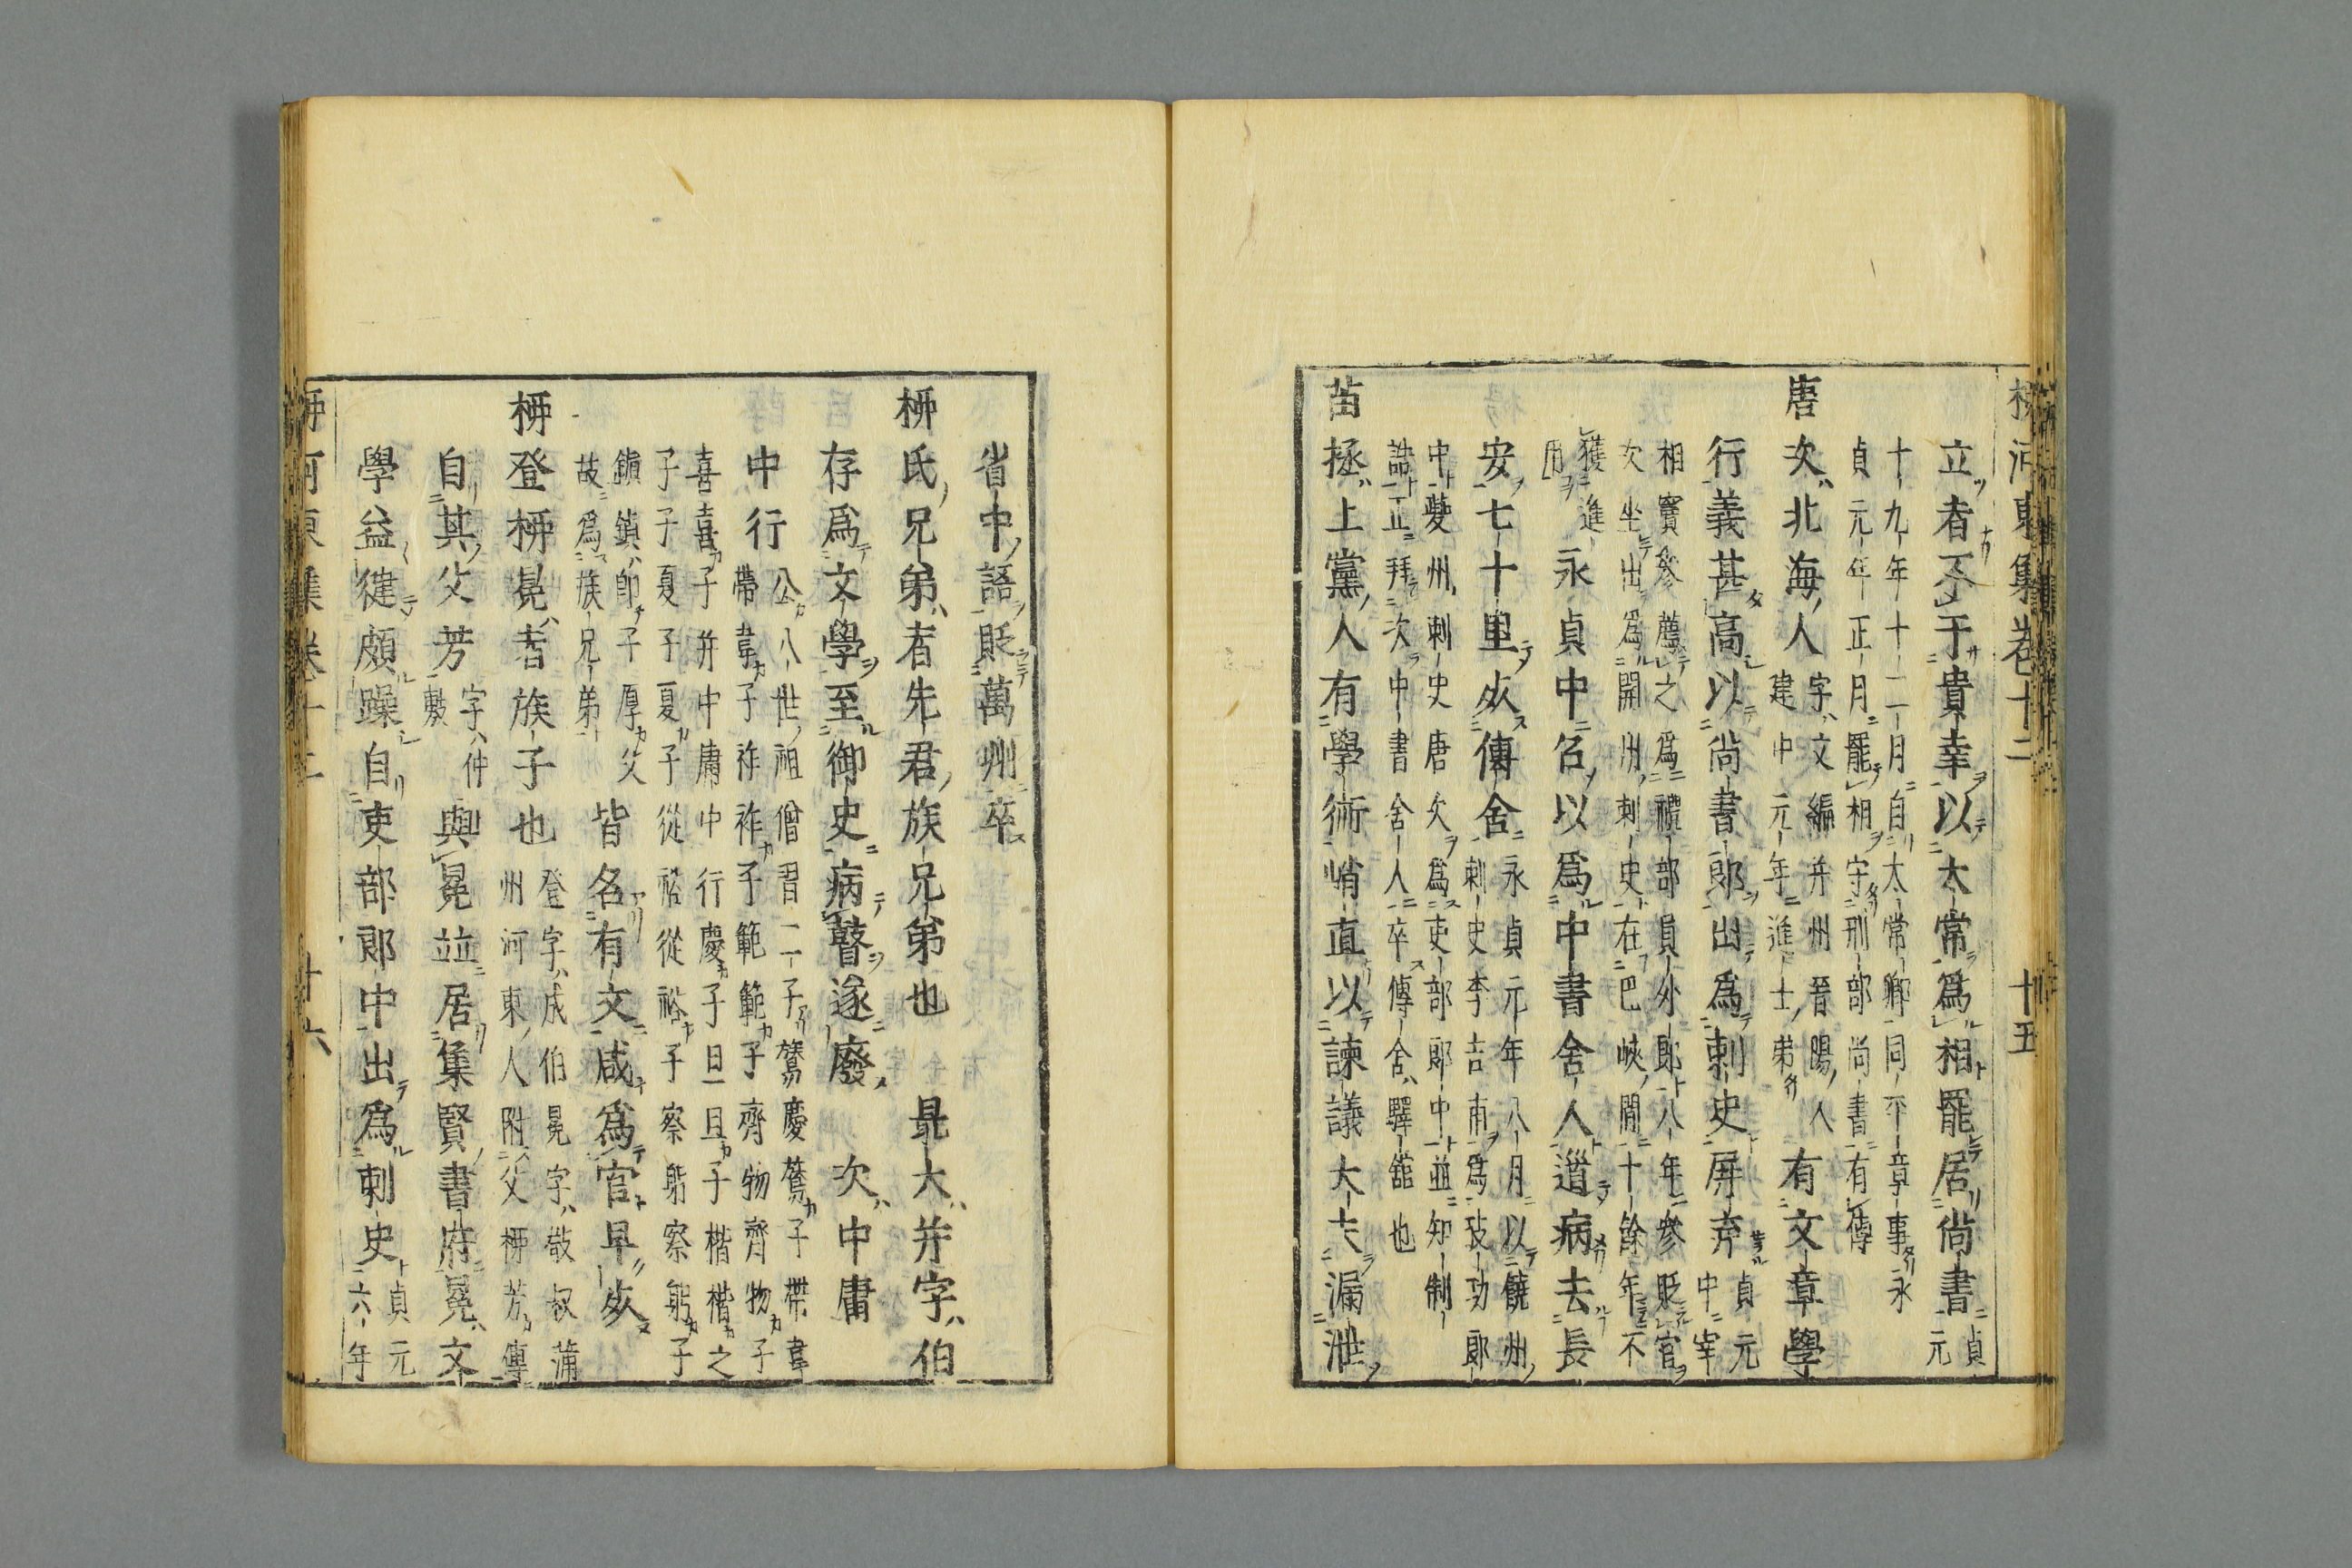 柳河東集卷十二 十五
立者不于貴幸以太常爲相罷居尚書貞
元
十九年十二月自太常卿同平章事永
貞元年正月罷相守刑部尚書有傳
唐次北海人字文編并州晉陽人
建中元年進士弟有文章學
行義甚高以尚書郎出爲刺史屏弃貞元
中宰
相竇參薦之爲禮部員外郎八年參貶官
次坐出爲開州刺史在巴峽間十餘年不
獲進
用永貞中召以爲中書舍人道病去長
安七十里死傳舍永貞元年八月以饒州
刺史李吉甫爲考功郎
中夔州刺史唐次爲吏部郎中並知制
誥正拜次中書舍人卒傳舍驛舘也
苗拯上黨人有學術峭直以諫議大夫漏泄
省中語貶萬州卒
柳氏兄弟者先君族兄弟也最大并字伯
存爲文學至御史病瞽遂廢次中庸
中行公八世祖僧習二子鷟慶鷟子帶韋
帶韋子祚祚子範範子齊物齊物子
喜喜子并中庸中行慶子旦旦子楷楷之
子子夏子夏子從裕從裕子察躬察躬子
鎭鎭即子厚父
故爲族兄弟皆名有文咸爲官早死
柳登柳冕者族子也登字成伯冕字敬叔蒲
州河東人附父柳芳傳
自其父芳字仲
敷與冕竝居集賢書府冕文
學益徤頗躁自吏部郎中出爲刺史貞元
六年
柳河東集卷十二 十六